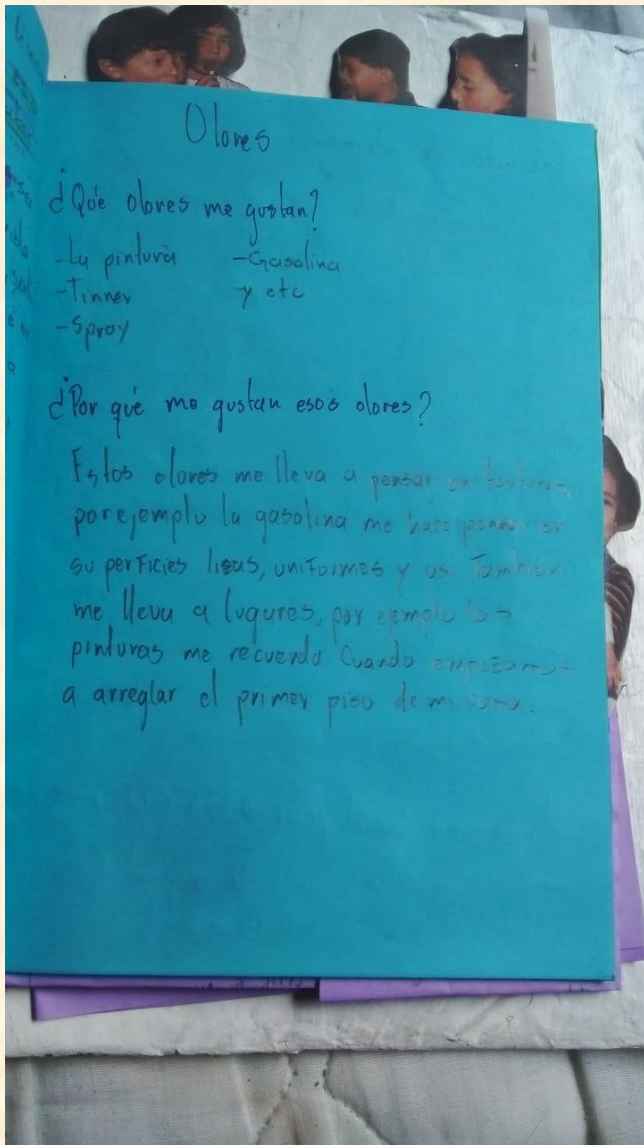 Olores
¿Qué olores me gustan?
- La pintura - Gasolina
- Tinner - y etc
- Spray
¿Por qué me gustan esos olores?
Estos olores me lleva a pensar en texturas,
por ejemplo la gasolina me hace pensar en
superficies lisas, uniformes y asi. También
me lleva a lugares, por ejemplo las
pinturas me recuerda cuando empezamos
a arreglar el primer piso de mi casa.